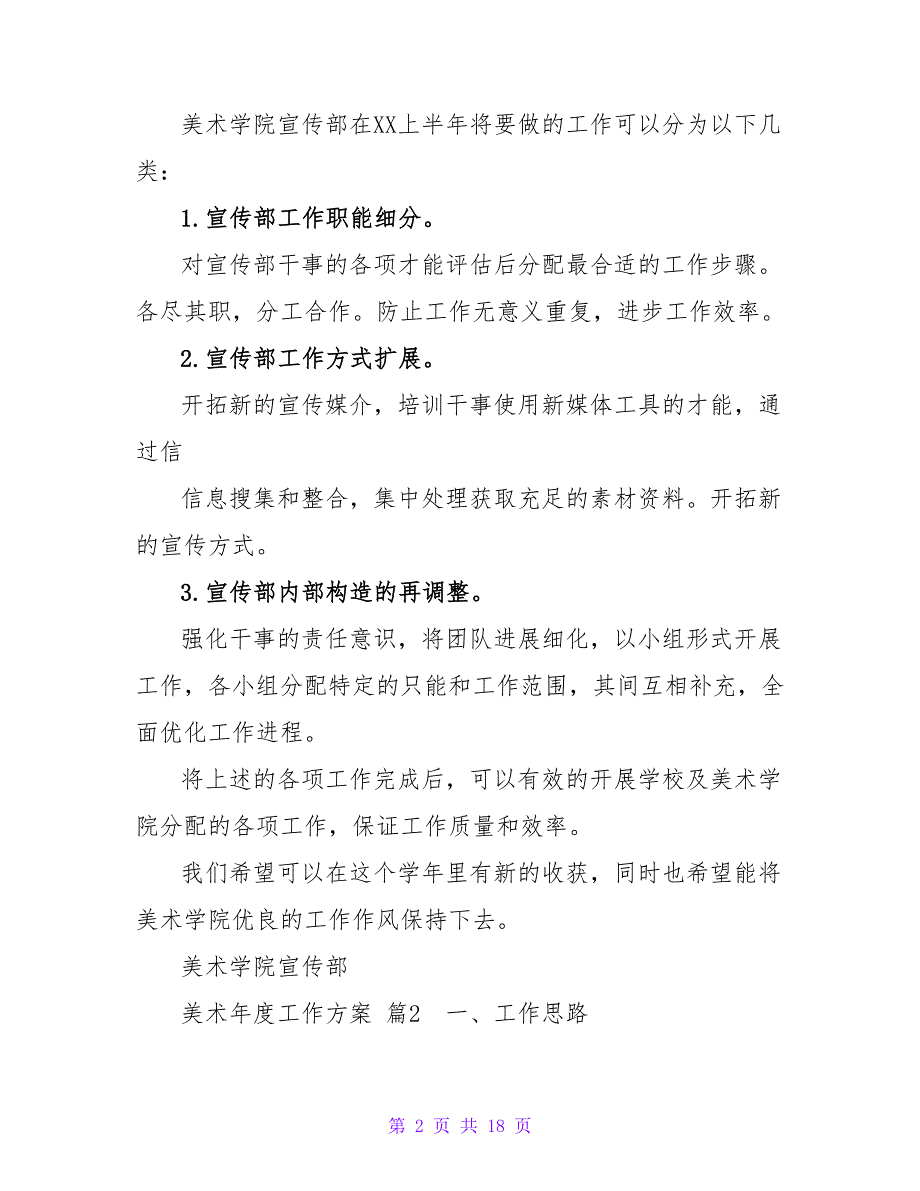 美术学院宣传部在XX上半年将要做的工作可以分为以下几
类：
1.宣传部工作职能细分。
对宣传部干事的各项才能评估后分配最合适的工作步骤。
各尽其职，分工合作。防止工作无意义重复，进步工作效率。
2.宣传部工作方式扩展。
开拓新的宣传媒介，培训干事使用新媒体工具的才能，通
过信
信息搜集和整合，集中处理获取充足的素材资料。开拓新
的宣传方式。
3.宣传部内部构造的再调整。
强化干事的责任意识，将团队进展细化，以小组形式开展
工作，各小组分配特定的只能和工作范围，其间互相补充，全
面优化工作进程。
将上述的各项工作完成后，可以有效的开展学校及美术学
院分配的各项工作，保证工作质量和效率。
我们希望可以在这个学年里有新的收获，同时也希望能将
美术学院优良的工作作风保持下去。
美术学院宣传部
美术年度工作方案 篇2 一、工作思路
第 2 页 共 18 页